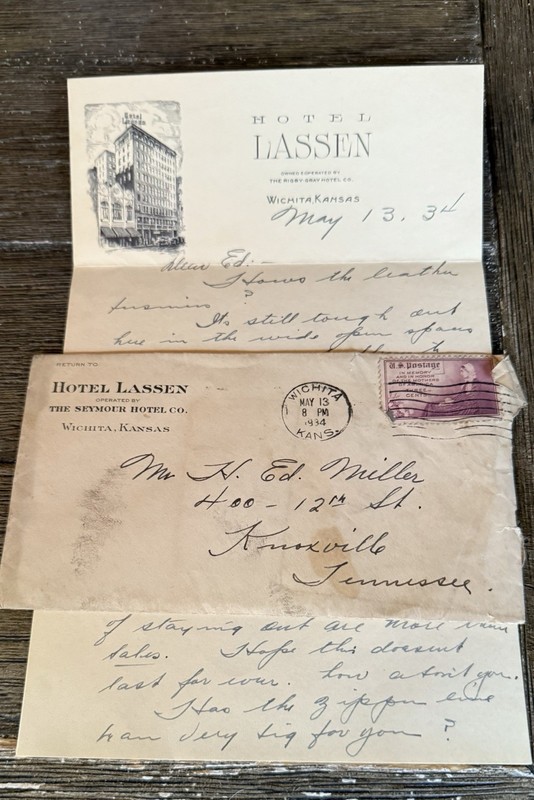 Hotel
Lassen
HOTEL
LASSEN
OWNED & OPERATED BY
THE RIGBY-GRAY HOTEL CO.
WICHITA, KANSAS
May 13, 34
Dear Ed:-
Hows the leather
business ?
Its still tough out
here in the wide open spaces
RETURN TO
HOTEL LASSEN
OPERATED BY
THE SEYMOUR HOTEL CO.
WICHITA, KANSAS
WICHITA
MAY 13
8 PM
1934
KANS.
U.S. Postage
IN MEMORY
AND IN HONOR
OF THE MOTHERS
THREE
CENTS
Mr H. Ed. Miller
400 - 12th St.
Knoxville
Tennessee.
of staying out are more than
sales. Hope this dossent
last for ever. how about you.
Has the zipper line
been very big for you ?